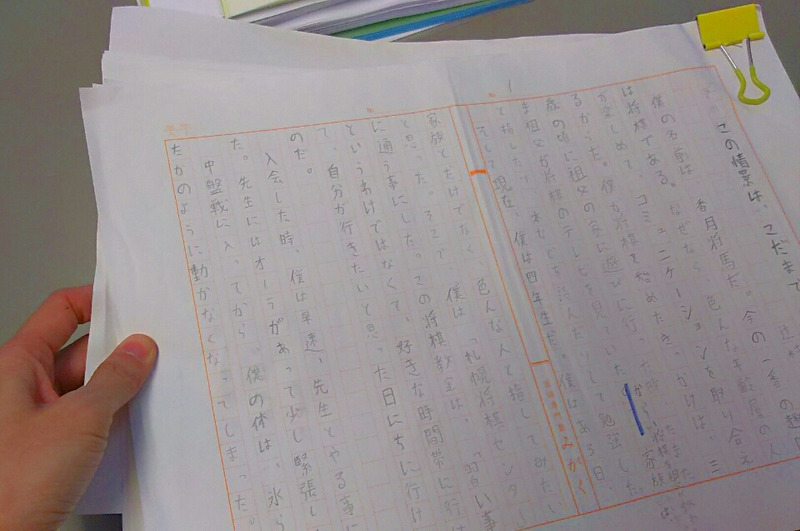 この情景は、こだまで
僕の名前は 香月 馬だ。今の一番の趣
は将棋である。なぜなら 色んな年齢層の人
が楽しめて、コミュニケーションを取り合え
るからだ。僕が将棋を始めたきっかけは、三
歳の時に祖父の家に遊びに行った時
ま祖父が将棋のテレビを見ていた から、家族
と指したり、本などを読んだりして勉強した。
そして現在、僕は四年生だ。僕はある日、
みがく
家族とだけでなく 色んな人と指してみたい
と思った。そこで 僕は「札幌将棋センター
に通う事にした。この将棋教室は、習い事
というわけではなくて、好きな時間帯に行け
て、自分が行きたいと思った日にちに行け
のだ。
入会した時、僕は早速、先生とやる事に
た。先生にはオーラがあって少し緊張し
中盤戦に入ってから、僕の体は、氷ら
たかのように動かなくなってしまった。